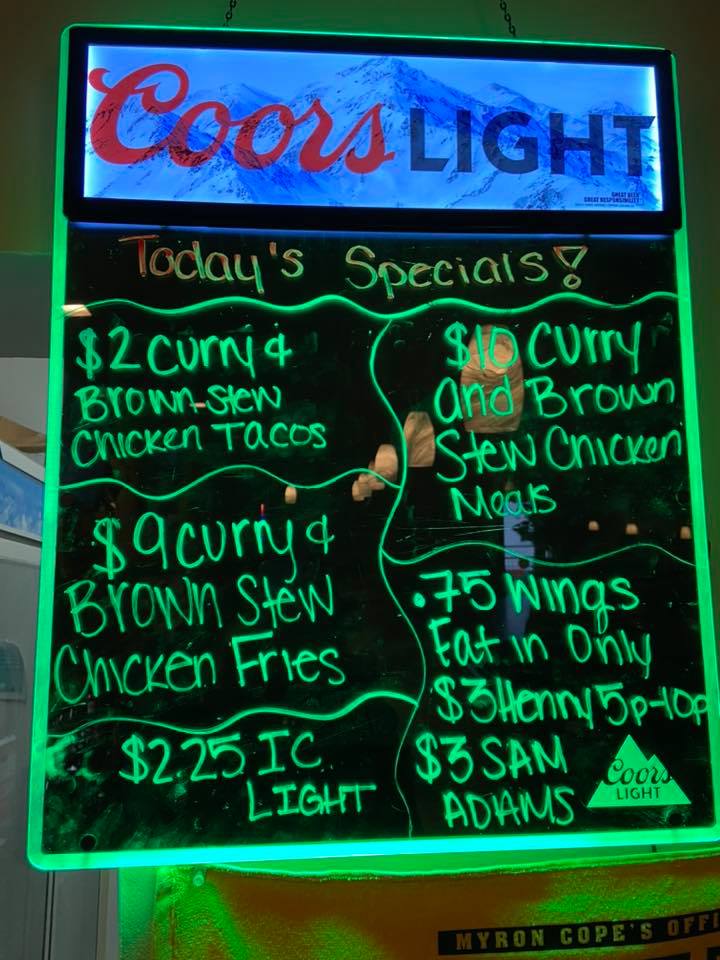 Coors LIGHT
GREAT BEER
GREAT RESPONSIBILITY
Today's Specials!
$2 Curry &
Brown-Stew
Chicken Tacos
$9 Curry &
Brown Stew
Chicken Fries
$2.25 IC
LIGHT
$10 Curry
and Brown
Stew Chicken
Meals
.75 Wings
Eat in Only
$3 Henny 5p-10p
$3 SAM
ADAMS
Coors
LIGHT
MYRON COPE'S OFFI